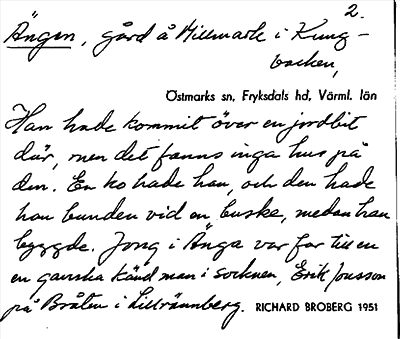 2.
Ängen, gård å Millmark i Kung-
backen,
Östmarks sn, Fryksdals hd, Värml. län
Han hade kommit över en jordbit
där, men det fanns inga hus på
den. En ko hade han, och den hade
han bunden vid en buske, medan han
byggde. Jong i Änga var far till en
en ganska känd man i socknen, Erik Jonsson
på Bråten i Lillrännberg. RICHARD BROBERG 1951